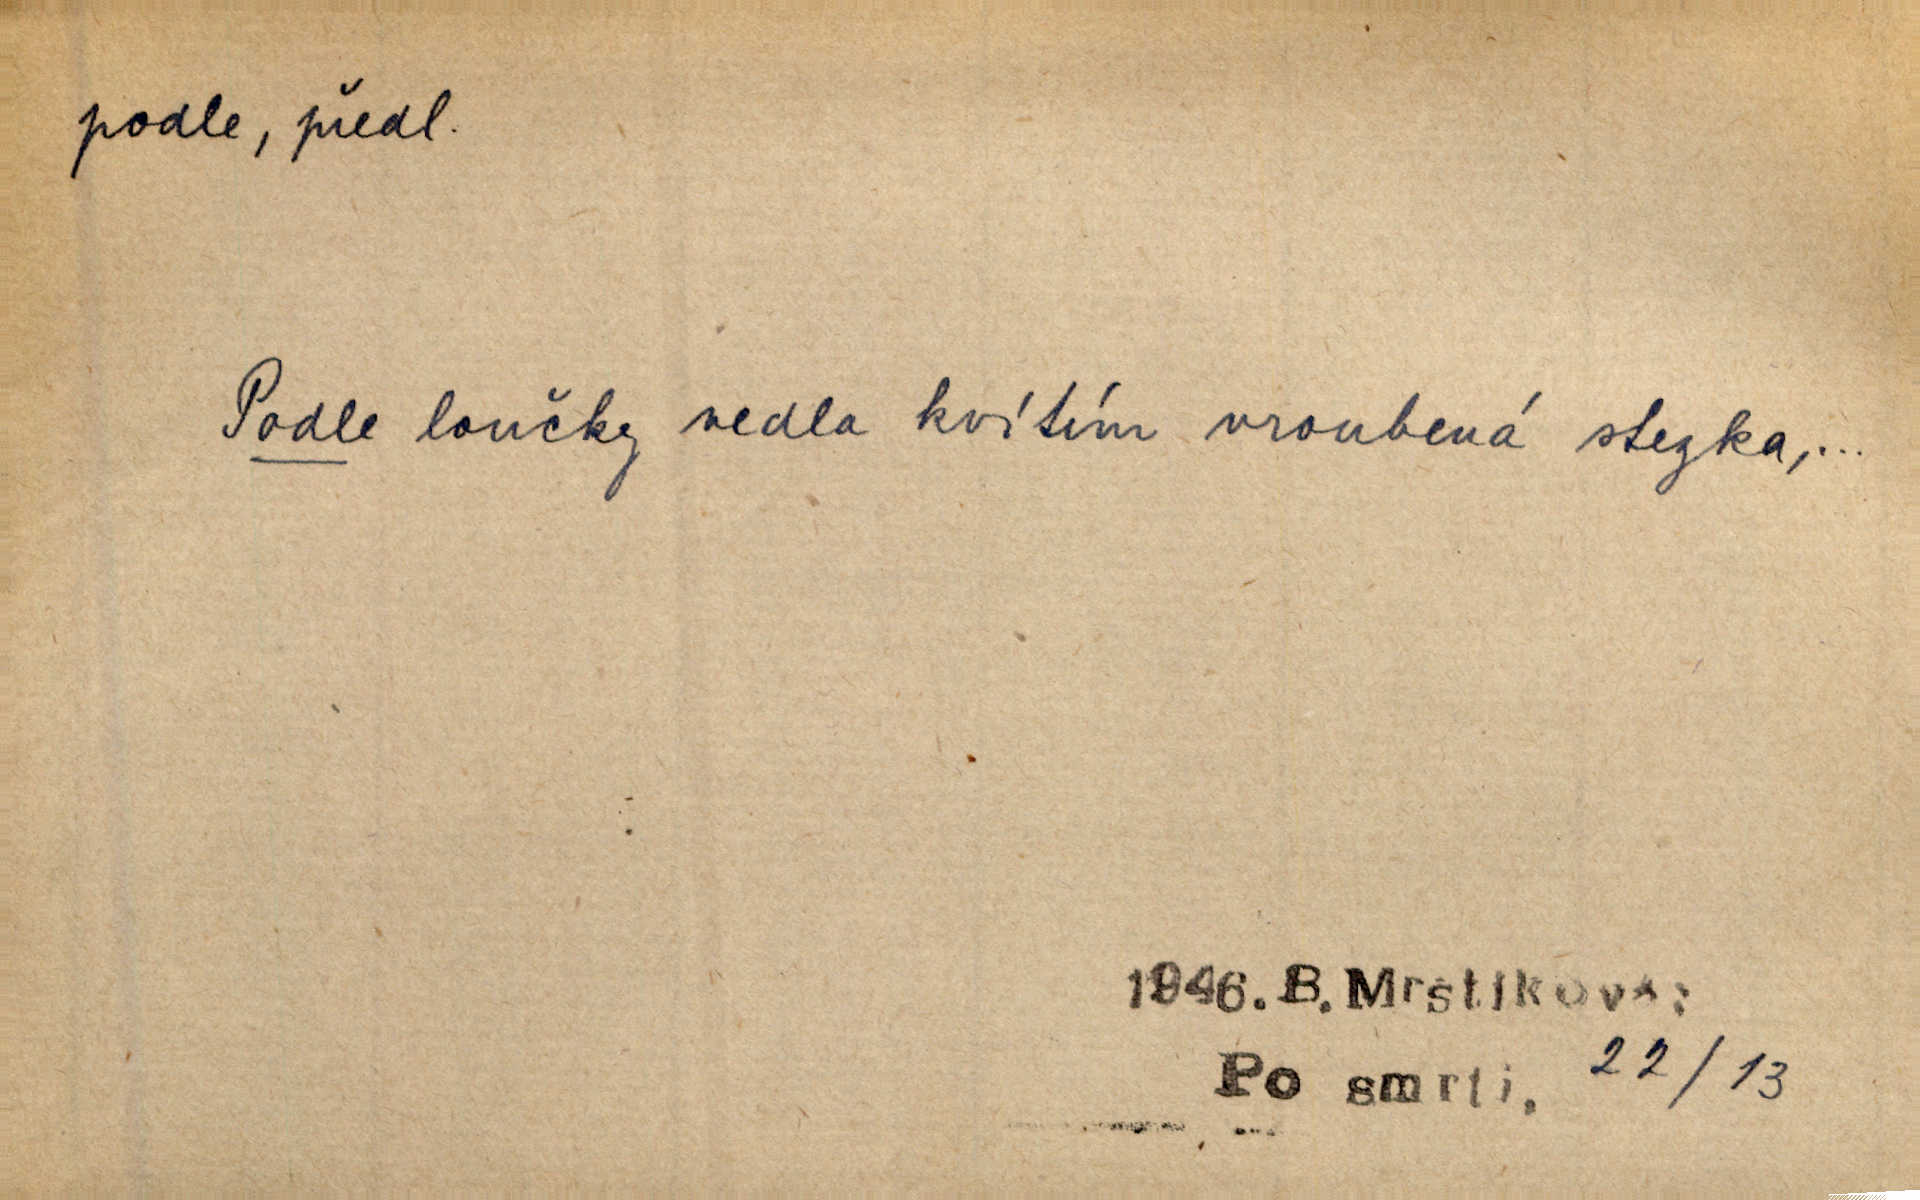 podle, předl.
Podle loučky vedla kvítím vroubená stezka,...
1946. B. Mrštíková:
Po smrti, 22/13